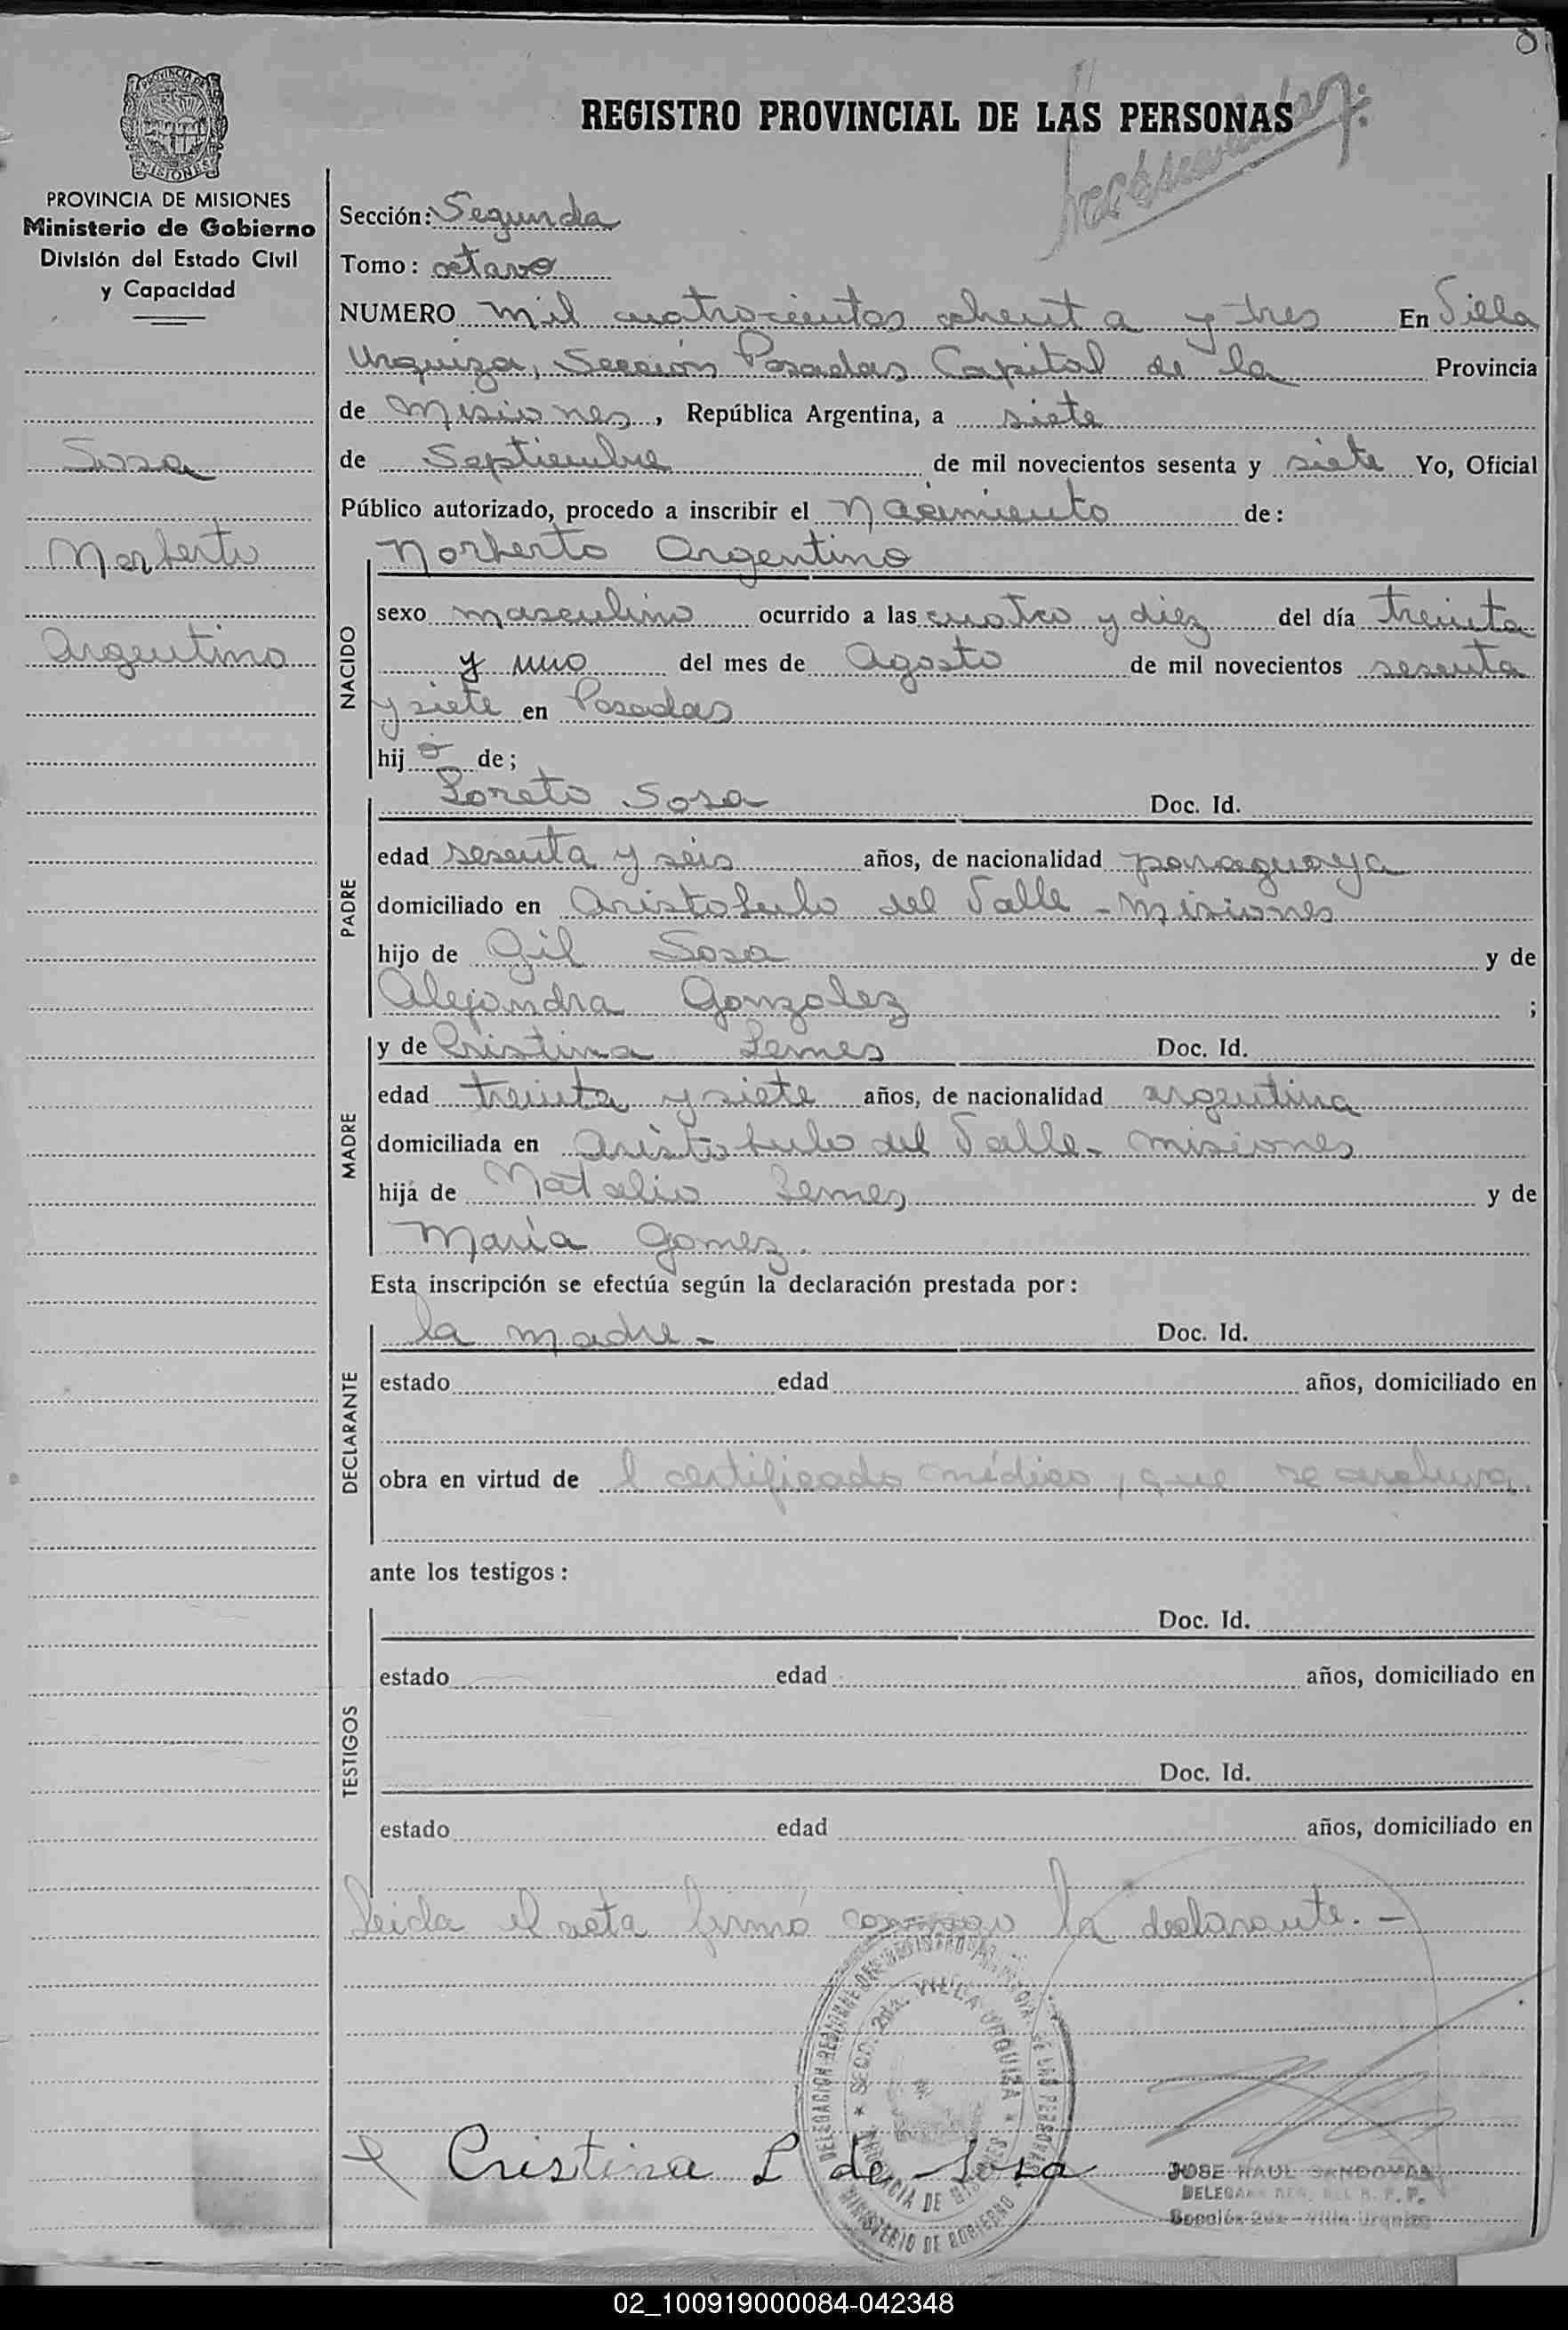 8
REGISTRO PROVINCIAL DE LAS PERSONAS
PROVINCIA DE MISIONES
MISIONES
PROVINCIA DE MISIONES
Ministerio de Gobierno
División del Estado Civil
y Capacidad
Sosa
Norberto
Argentino
Sección: Segunda
Tomo: octavo
NUMERO mil cuatrocientos ochenta y tres En Villa
Urquiza, Sección Posadas Capital de la Provincia
de Misiones, República Argentina, a siete
de Septiembre de mil novecientos sesenta y siete Yo, Oficial
Público autorizado, procedo a inscribir el Nacimiento de:
NACIDO
Norberto Argentino
sexo masculino ocurrido a las cuatro y diez del día treinta
y uno del mes de Agosto de mil novecientos sesenta
y siete en Posadas
hijo de;
PADRE
Loreto Sosa Doc. Id.
edad sesenta y seis años, de nacionalidad paraguaya
domiciliado en Aristobulo del Valle - Misiones
hijo de Gil Sosa y de
Alejandra Gonzalez ;
MADRE
y de Cristina Lemes Doc. Id.
edad treinta y siete años, de nacionalidad argentina
domiciliada en Aristobulo del Valle - Misiones
hija de Natalio Lemes y de
María Gomez.
Esta inscripción se efectúa según la declaración prestada por:
DECLARANTE
la madre - Doc. Id.
estado edad años, domiciliado en
obra en virtud de l certificado médico, que se archiva.
ante los testigos:
TESTIGOS
Doc. Id.
estado edad años, domiciliado en
Doc. Id.
estado edad años, domiciliado en
Leida el acta firmó conmigo la declarante. -
SECC. 2da. VILLA URQUIZA
PROVINCIA DE MISIONES
MINISTERIO DE GOBIERNO
Cristina L de Sosa
JOSE RAUL SANDOVAL
Sección 2da - Villa Urquiza
02_100919000084-042348